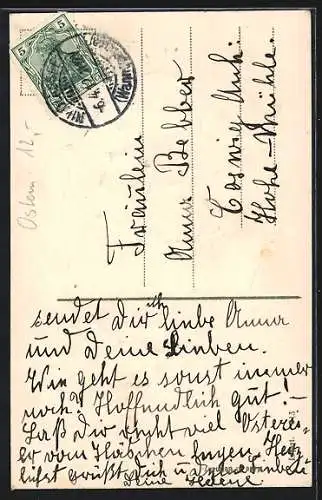 5 5
Ostern 12,-
Fräulein
Anna Bebber
Coswig Anh.
Hohe-Mühle
sendet Dir liebe Anna
und Deine Lieben.
Wie geht es sonst immer
noch? Hoffendlich gut! –
Laß Dir recht viel Osterei-
er vom Häschen legen. Herz-
lichst grüßt Dich u.
Deine Helene